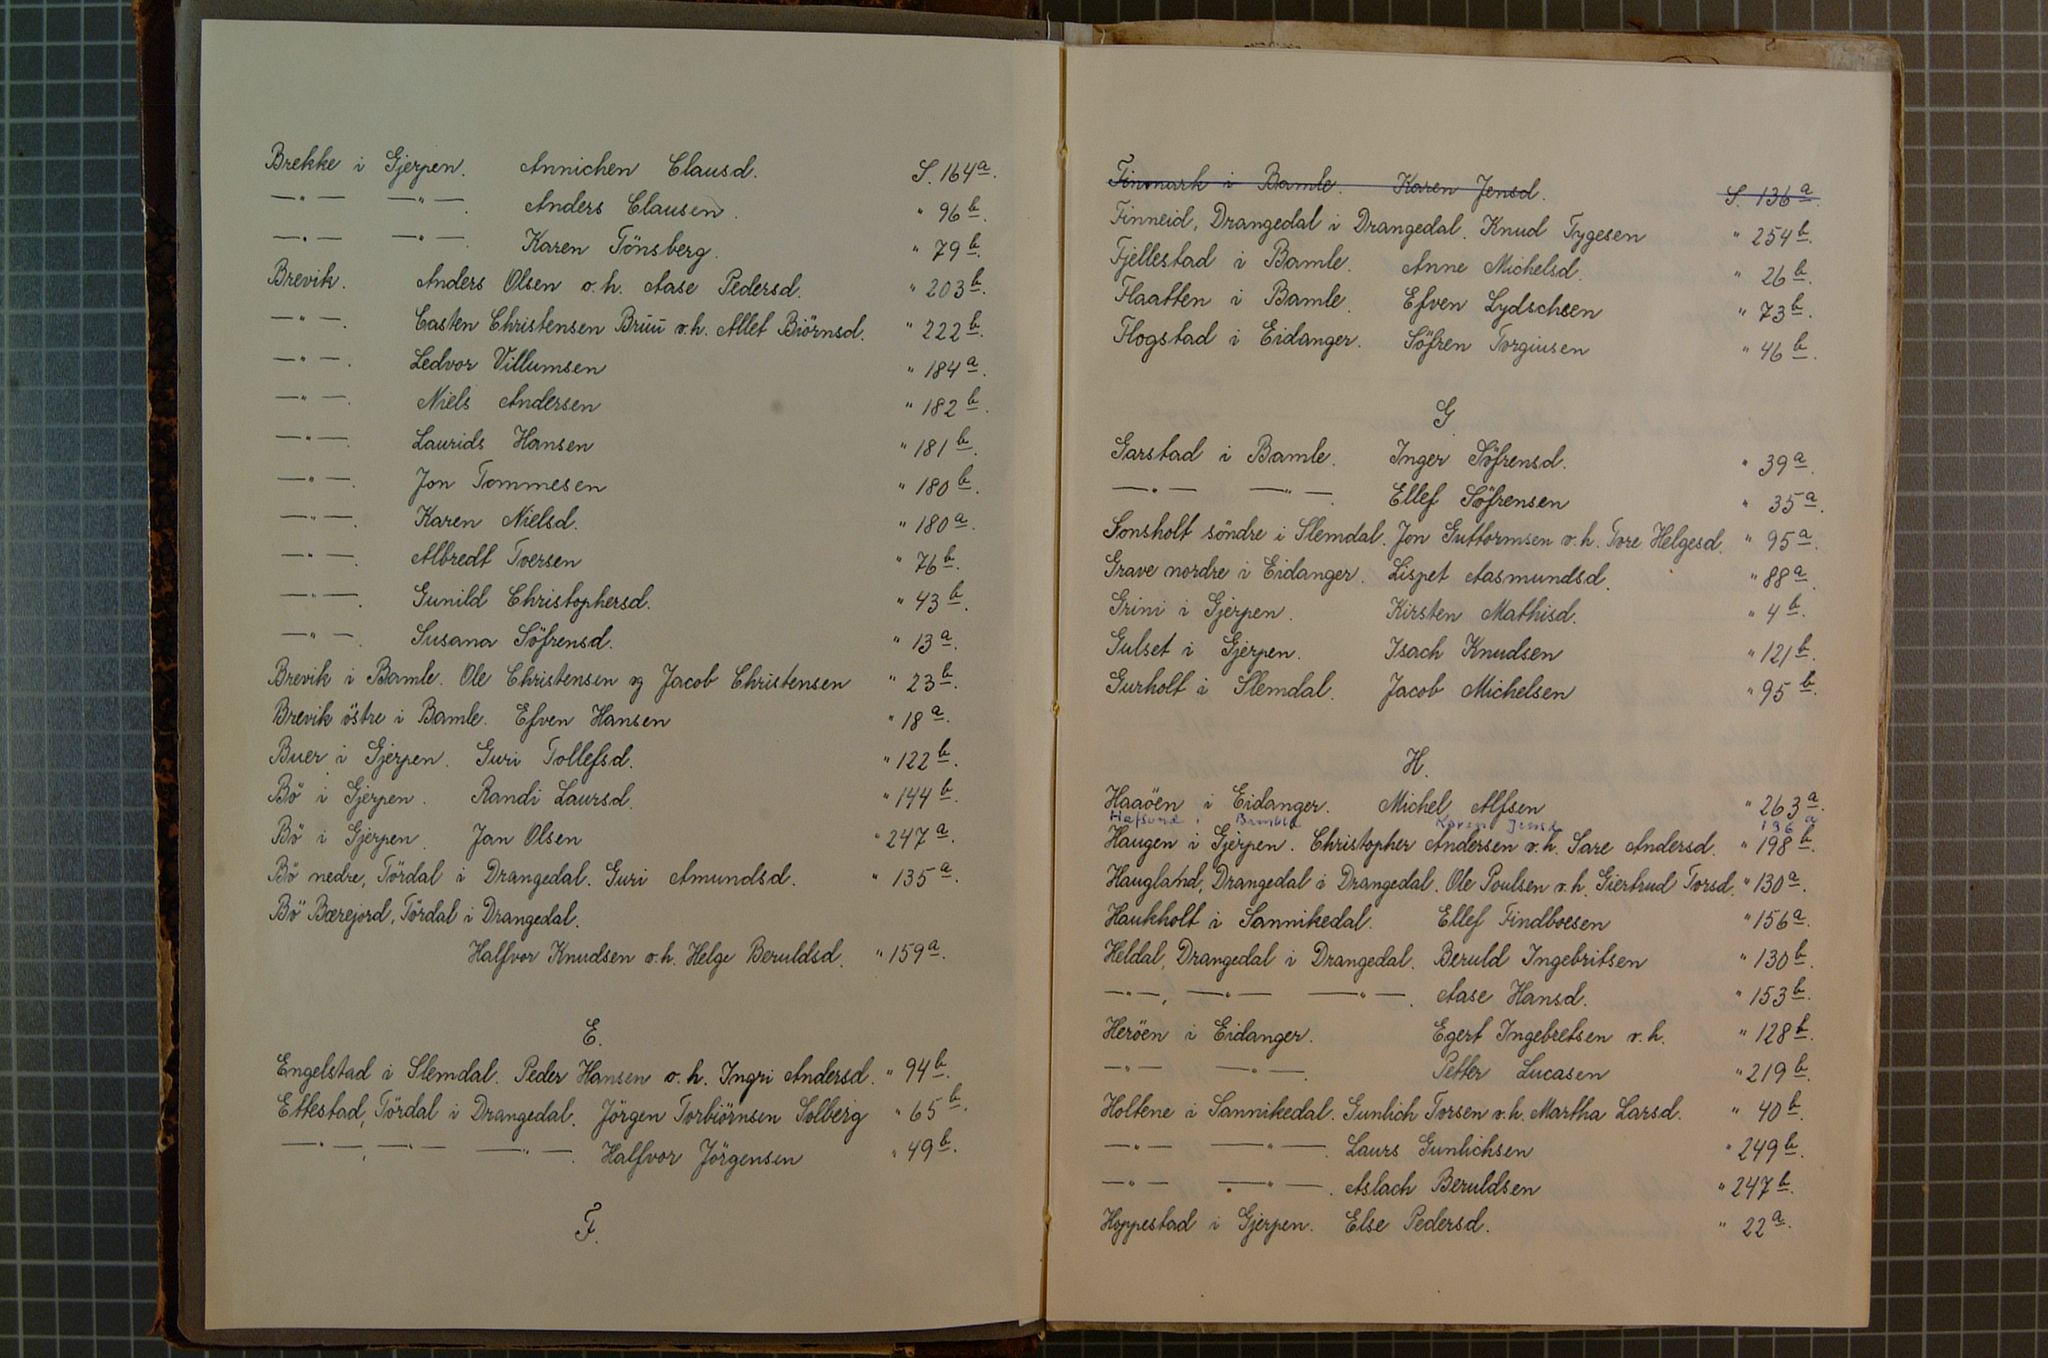 Brekke i Gjerpen. Annichen Clausd. S. 164a.
—"— —"—. Anders Clausen. " 96b.
—"— —"—. Karen Tönsberg. " 79b.
Brevik. Anders Olsen o.h. Aase Pedersd. " 203b.
—"—. Casten Christensen Bruu o.h. Allet Biörnsd. " 222b.
—"—. Ledvor Villumsen " 184a.
—"—. Niels Andersen " 182b.
—"—. Laurids Hansen " 181b.
—"—. Jon Tommesen " 180b.
—"—. Karen Nielsd. " 180a.
—"—. Albredt Tversen " 76b.
—"—. Gunild Christophersd. " 43b.
—"—. Susana Söfrensd. " 13a.
Brevik i Bamle. Ole Christensen og Jacob Christensen " 23b.
Brevik östre i Bamle. Efven Hansen " 18a.
Buer i Gjerpen. Guri Tollefsd. " 122b.
Bö i Gjerpen. Randi Laursd. " 144b.
Bö i Gjerpen. Jan Olsen " 247a.
Bö nedre, Tördal i Drangedal. Guri Amundsd. " 135a.
Bö Bærejord, Tördal i Drangedal.
Halfvor Knudsen o.h. Helge Beruldsd. " 159a.
E.
Engelstad i Slemdal. Peder Hansen o.h. Ingri Andersd. " 94b.
Ettestad, Tördal i Drangedal. Jörgen Torbiörnsen Solberg " 65b.
—"—, —"— —"—. Halfvor Jörgensen " 49b.
F.
Finmark i Bamle. Karen Jensd. S. 136a.
Finneid, Drangedal i Drangedal. Knud Tygesen " 254b.
Fjellestad i Bamle. Anne Michelsd. " 26b.
Flaatten i Bamle. Efven Lydschsen " 73b.
Flogstad i Eidanger. Söfren Torgiusen " 46b.
G
Garstad i Bamle. Inger Söfrensd. " 39a.
—"— —"—. Ellef Söfrensen " 35a.
Gonsholt söndre i Slemdal. Jon Guttormsen o.h. Tore Helgesd. " 95a.
Grave nordre i Eidanger. Lispet Aasmundsd. " 88a.
Grini i Gjerpen. Kirsten Mathisd. " 4b.
Gulset i Gjerpen. Isach Knudsen " 121b.
Gurholt i Slemdal. Jacob Michelsen " 95b.
H.
Haaöen i Eidanger. Michel Alfsen " 263a.
Hafsund i Bamble Karen Jensd 136 a
Haugen i Gjerpen. Christopher Andersen o.h. Sare Andersd. " 198b.
Haugland, Drangedal i Drangedal. Ole Poulsen o.h. Giertrud Torsd. " 130a.
Haukholt i Sannikedal. Ellef Findboesen " 156a.
Heldal, Drangedal i Drangedal. Beruld Ingebritsen " 130b.
—"—, —"— —"—. Aase Hansd. " 153b.
Heröen i Eidanger. Egert Ingebretsen o.h. " 128b.
—"— —"—. Petter Lucasen " 219b.
Holtene i Sannikedal. Gunlich Torsen o.h. Martha Larsd. " 40b.
—"— —"—. Laurs Gunlichsen " 249b.
—"— —"—. Aslach Beruldsen " 247b.
Hoppestad i Gjerpen. Else Pedersd. " 22a.